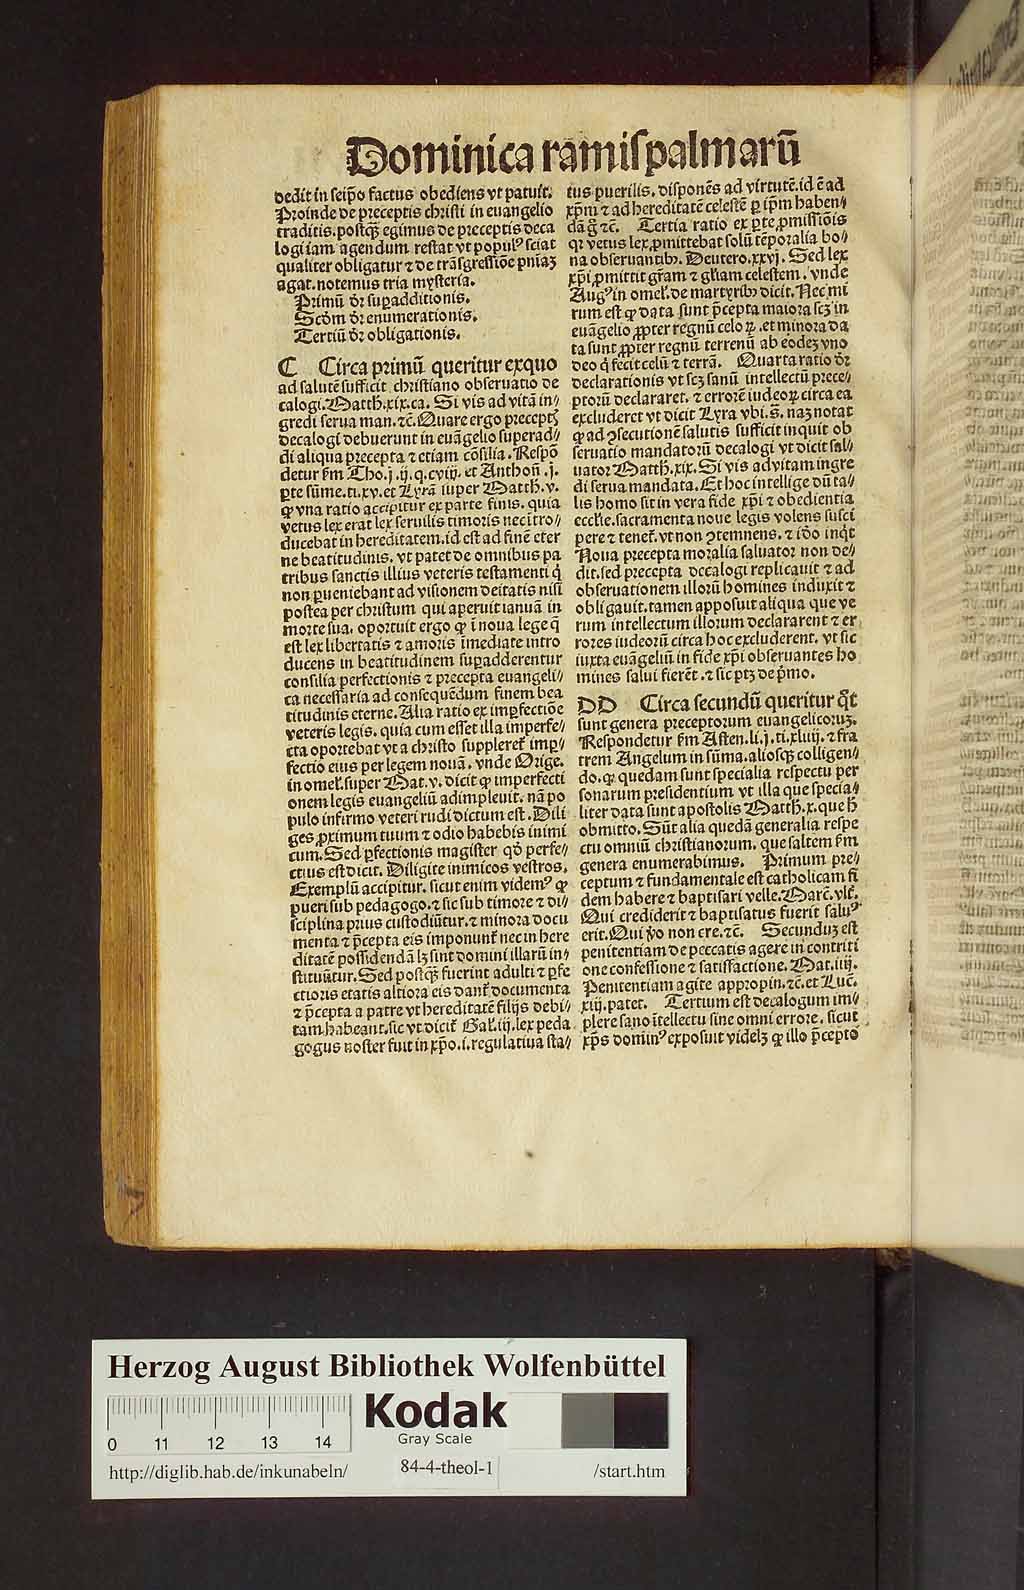 Dominica ramis palmarū
dedit in seip̄o factus obediens vt patuit.
Proinde de preceptis christi in euangelio
traditis. postq̄ꝫ egimus de preceptis deca
logi iam agendum restat vt populꝰ sciat
qualiter obligatur ⁊ de trāsgressiōe pniaꝫ
agat. notemus tria mysteria.
Primū dr̄ suꝑadditionis.
Scōm dr̄ enumerationis.
Tertiū dr̄ obligationis.
C Circa primū queritur exquo
ad salutē sufficit christiano obseruatio de
calogi. Matth̄.xix.ca. Si vis ad vitā in⸗
gredi serua man. ⁊c̄. Quare ergo preceptꝭ
decalogi debuerunt in euāgelio superad⸗
di aliqua precepta ⁊ etiam cōsilia. Respō
detur ẜm Tho.j.ij.q.cviij. et Anthoñ.j.
ꝑte sūme.ti.xv. et Lyrā super Matth̄.v.
ꝙ vna ratio accipitur ex parte finis. quia
vetus lex erat lex seruilis timoris nec ītro⸗
ducebat in hereditatem. id est ad finē eter
ne beatitudinis. vt patet de omnibus pa
tribus sanctis illius veteris testamenti q̇
non ꝑueniebant ad visionem deitatis nisi
postea per christum qui aperuit ianuā in
morte sua. oportuit ergo ꝙ ī noua lege q̄
est lex libertatis ⁊ amoris īmediate intro
ducens in beatitudinem suꝑadderentur
consilia perfectionis ⁊ precepta euangeli⸗
ca necessaria ad consequēdum finem bea
titudinis eterne. Alia ratio ex imꝑfectiōe
veteris legis. quia cum esset illa imperfe⸗
cta oportebat vt a christo suppleret̄ imꝑ⸗
fectio eius per legem nouā. vnde Orige.
in omel̄. super Mat.v. dicit ꝙ imperfecti
onem legis euangeliū adimpleuit. nā po
pulo infirmo veteri rudi dictum est. Dili
ges ꝓximum tuum ⁊ odio habebis inimi
cum. Sed ꝑfectionis magister qđ perfe⸗
ctius est dicit. Diligite inimicos vestros.
Exemplū accipitur. sicut enim videmꝰ ꝙ
pueri sub pedagogo. ⁊ sic sub timore ⁊ di⸗
sciplina prius custodiūtur. ⁊ minora docu
menta ⁊ p̄cepta eis imponunt̄ nec in here
ditatē possidendā lꝫ sint domini illarū in⸗
stituūtur. Sed postq̄ꝫ fuerint adulti ⁊ ꝑfe
ctioris etatis altiora eis dant̄ documenta
⁊ p̄cepta a patre vt hereditatē filijs debi⸗
tam habeant. sic vt dicit̄ Gal̄.iij. lex peda
gogus noster fuit in xp̄o.i. regulatiua sta⸗
tus puerilis. disponēs ad virtutē. id ē ad
xp̄m ⁊ ad hereditatē celestē ꝑ ip̄m haben⸗
dā g̊ ⁊c̄. Tertia ratio ex ꝑte ꝓmissiōis
qꝛ vetus lex ꝓmittebat solū tēporalia bo⸗
na obseruantibꝰ. Deutero.xxvj. Sed lex
xp̄i ꝓmittit gr̄am ⁊ gl̄iam celestem. vnde
Augꝰ in omel̄. de martyribꝰ dicit. Nec mi
rum est ꝙ data sunt p̄cepta maiora scꝫ in
euāgelio ꝓpter regnū celoꝝ. et minora da
ta sunt ꝓpter regnū terrenū ab eodeꝫ vno
deo q̇ fecit celū ⁊ terrā. Quarta ratio dr̄
declarationis vt scꝫ sanū intellectū prece⸗
ptorū declararet. ⁊ errorē iudeoꝝ circa ea
excluderet vt dicit Lyra vbi.s̄. naꝫ notat
ꝙ ad ꝯsecutionē salutis sufficit inquit ob
seruatio mandatorū decalogi vt dicit sal⸗
uator Matth̄.xix. Si vis ad vitam ingre
di serua mandata. Et hoc intellige dū ta⸗
lis homo sit in vera fide xp̄i ⁊ obedientia
eccl̄ie. sacramenta noue legis volens susci
pere ⁊ tenet̄. vt non ꝯtemnens. ⁊ iđo inq̇t
Noua precepta moralia saluator non de⸗
dit. sed precepta decalogi replicauit ⁊ ad
obseruationem illorū homines induxit ⁊
obligauit. tamen apposuit aliqua que ve
rum intellectum illorum declararent ⁊ er
rores iudeorū circa hoc excluderent. vt sic
iuxta euāgeliū in fide xp̄i obseruantes ho
mines salui fierēt. ⁊ sic ptꝫ de ṗmo.
DD Circa secundū queritur q̊t
sunt genera preceptorum euangelicoruꝫ.
Respondetur ẜm Asten.li.j.ti.xluij. ⁊ fra
trem Angelum in sūma. aliosqꝫ colligen⸗
do. ꝙ quedam sunt specialia respectu per
sonarum presidentium vt illa que specia⸗
liter data sunt apostolis Matth̄.x. que h̄
obmitto. Sūt alia quedā generalia respe
ctu omniū christianorum. que saltem ẜm
genera enumerabimus. Primum pre⸗
ceptum ⁊ fundamentale est catholicam fi
dem habere ⁊ baptisari velle. Marc̄.vlt̄.
Qui crediderit ⁊ baptisatus fuerit saluꝰ
erit. Qui v̊o non cre. ⁊c̄. Secunduꝫ est
penitentiam de peccatis agere in contriti
one confessione ⁊ satisfactione. Mat.iiij.
Penitentiam agite appropin. ⁊c̄. et Luc̄.
xiij. patet. Tertium est decalogum im⸗
plere sano ītellectu sine omni errore. sicut
xp̄s dominꝰ exposuit videlꝫ ꝙ illo p̄cepto
Herzog August Bibliothek Wolfenbüttel
Kodak
Gray Scale
0 11 12 13 14
http://diglib.hab.de/inkunabeln/ 84-4-theol-1 /start.htm